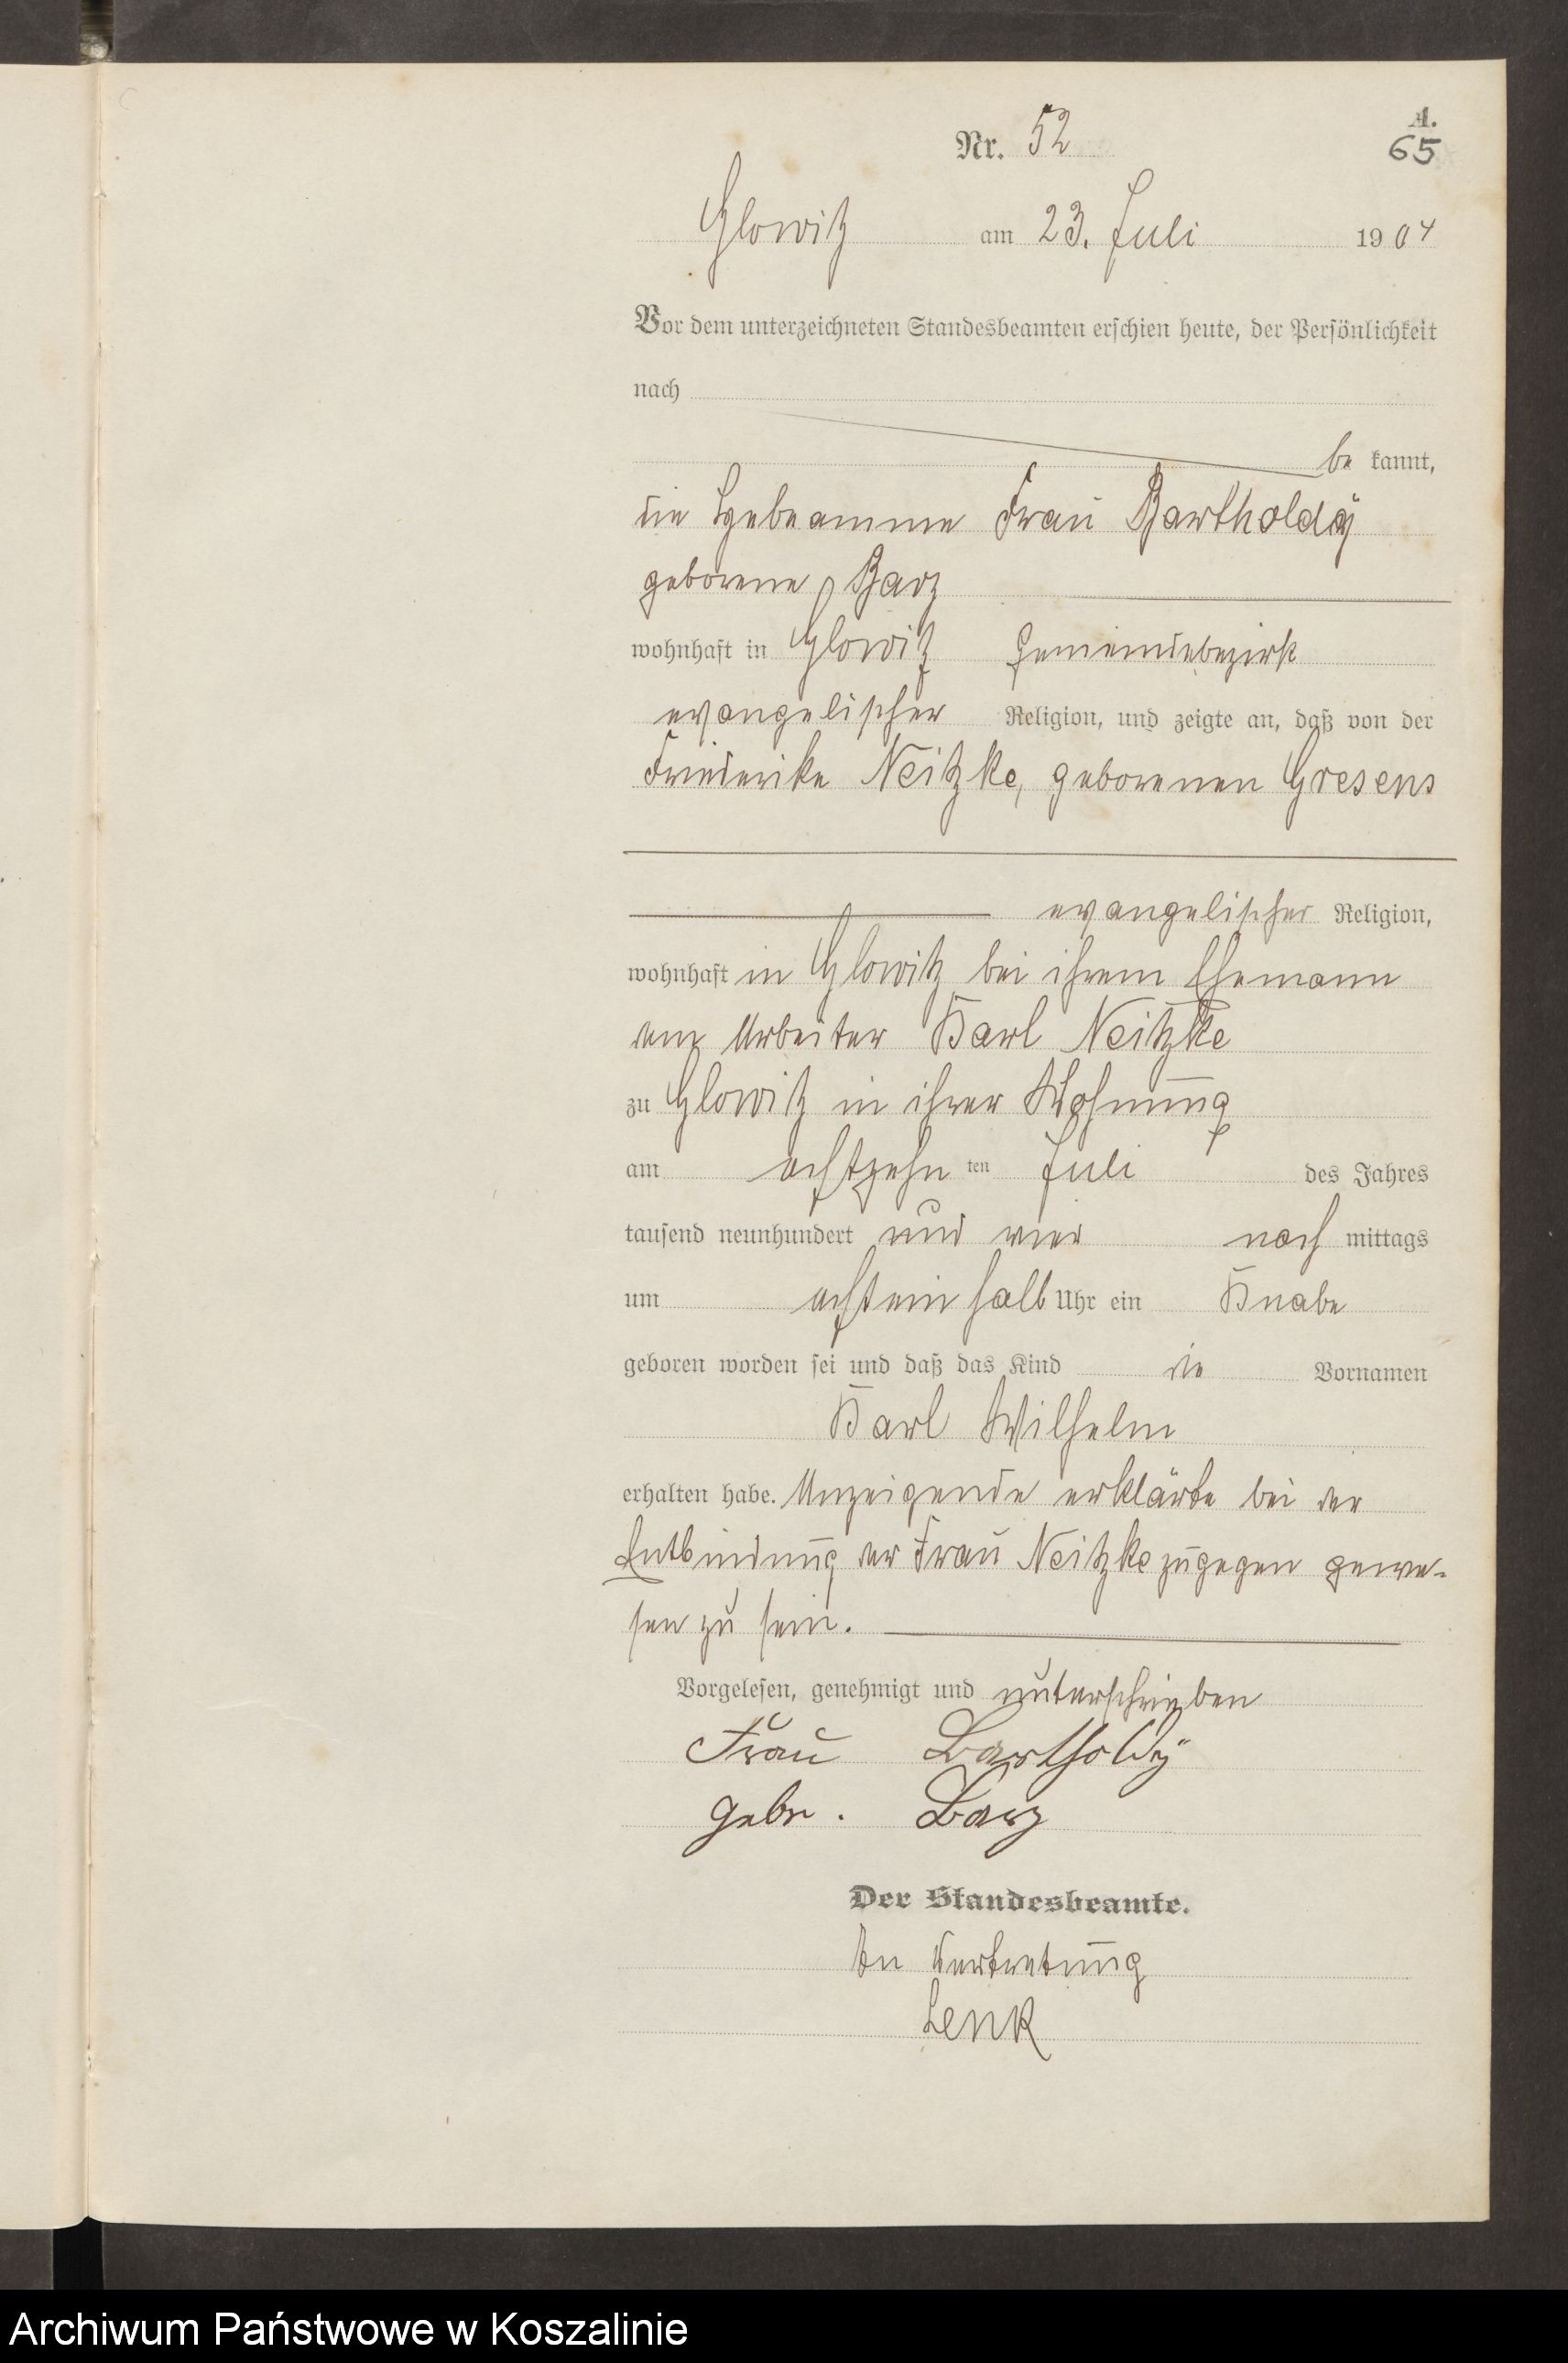 A.
Nr. 52
65
Glowitz am 23. Juli 1904
Vor dem unterzeichneten Standesbeamten erschien heute, der Persönlichkeit
nach
be kannt,
die Hebeamme Frau Bartholdÿ
geborene Barz
wohnhaft in Glowitz Gemeindebezirk
evangelischer Religion, und zeigte an, daß von der
Friederike Neitzke, geborenen Gresens
evangelischer Religion,
wohnhaft in Glowitz bei ihrem Ehemann
dem Arbeiter Karl Neitzke
zu Glowitz in ihrer Wohnung
am achtzehn ten Juli des Jahres
tausend neunhundert und vier nach mittags
um achteinhalb Uhr ein Knabe
geboren worden sei und daß das Kind die Vornamen
Karl Wilhelm
erhalten habe. Anzeigende erklärte bei der
Entbindung der Frau Neitzke zugegen gewe-
sen zu sein.
Vorgelesen, genehmigt und unterschrieben
Frau Bartholdÿ
gebr. Barz
Der Standesbeamte.
In Vertretung
Lenk
Archiwum Państwowe w Koszalinie